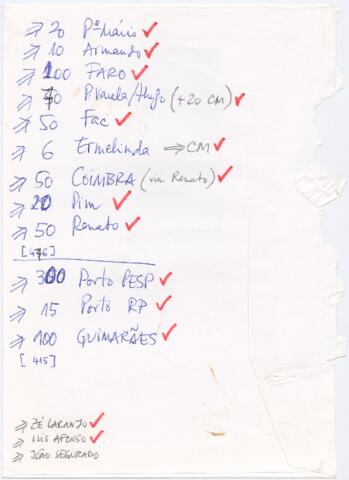 ⇒ 20 Pº Mário ✓
⇒ 10 Armando ✓
⇒ 100 FARO ✓
⇒ 70 P. Varela/Hugo (+20 CM) ✓
⇒ 50 Fac ✓
⇒ 6 Ermelinda ⇒ CM ✓
⇒ 50 COIMBRA (via Renato) ✓
⇒ 20 Pim ✓
⇒ 50 Renato ✓
[476]
⇒ 300 Porto PESP ✓
⇒ 15 Porto RP ✓
⇒ 100 GUIMARÃES ✓
[415]
⇒ ZÉ LARANJO ✓
⇒ LUÍS AFONSO ✓
⇒ JOÃO SEGURADO